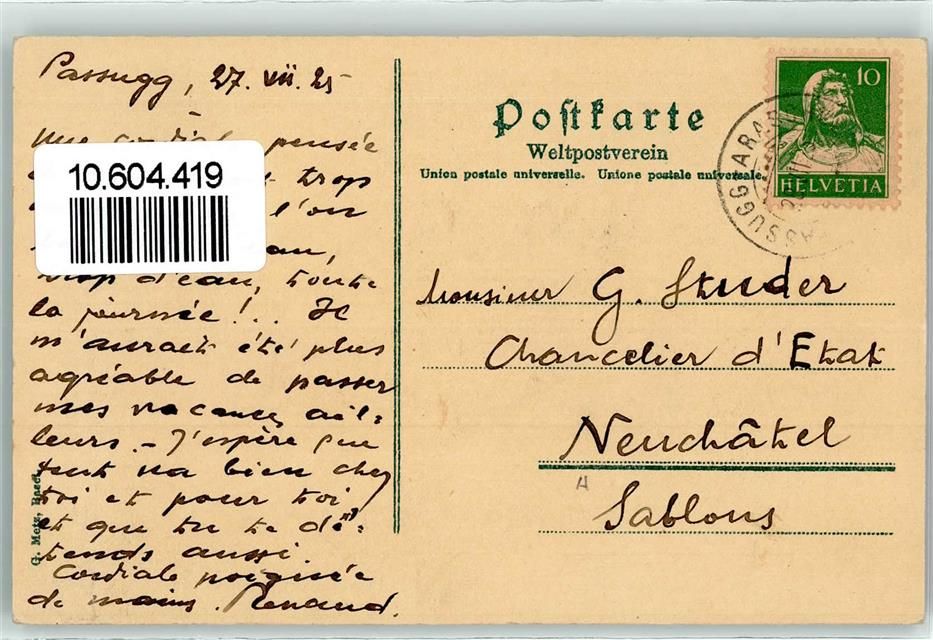 Passugg, 27. VII. 25
Une cordiale pensée
trop
l'on
trop d'eau, toute
la journée!.. Il
m'aurait été plus
agréable de passer
mes vacances ail=
leurs. - J'espère que
tout va bien chez
toi et pour toi
et que tu te dé=
tends aussi.
Cordiale poignée
de mains. Renaud.
10.604.419
G. Metz, Basel
Postkarte
Weltpostverein
Union postale universelle. Unione postale universale.
10
HELVETIA
PASSUGG-ARAS
Monsieur G. Studer
Chancelier d'Etat
Neuchâtel
Sablons